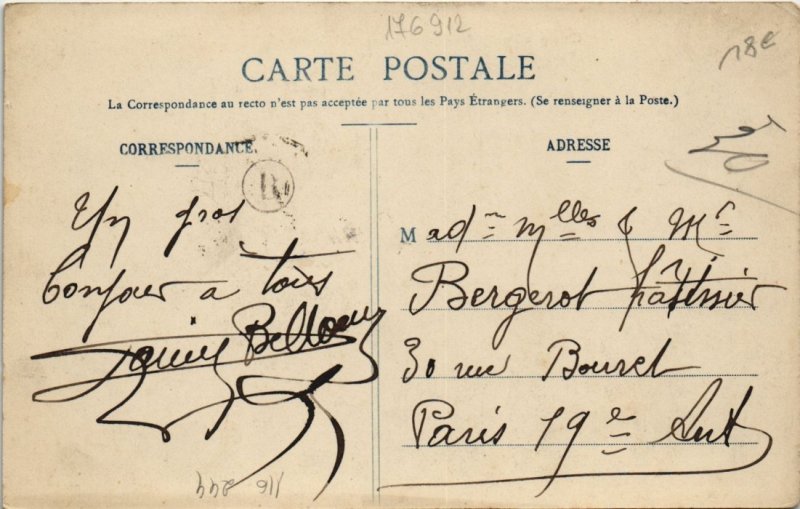 176912
18e
CARTE POSTALE
La Correspondance au recto n'est pas acceptée par tous les Pays Étrangers. (Se renseigner à la Poste.)
CORRESPONDANCE.
B
Un gros
bonjour a tous
ADRESSE
30
M ad^e M^lles & M^r
Bergerot Pâtissier
30 rue Bouret
Paris 19^e Art
116 244